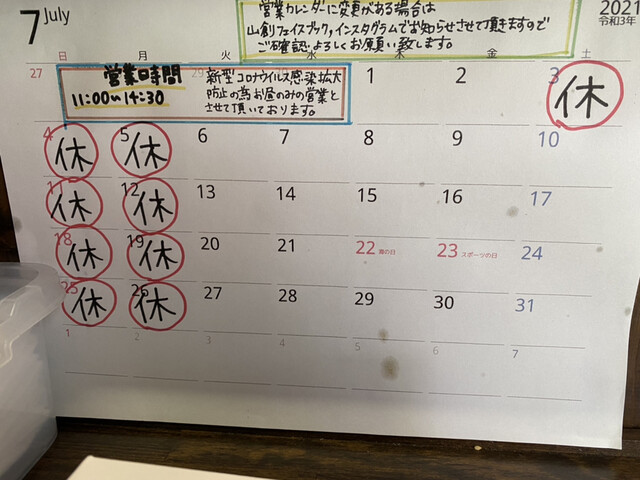 7 July
2021
令和3年
営業カレンダーに変更がある場合は
山創フェイスブック,インスタグラムでお知らせさせて頂きますので
ご確認よろしくお願い致します。
日 月 火 水 木 金 土
営業時間
11:00~14:30
新型コロナウイルス感染拡大
防止の為お昼のみの営業と
させて頂いております。
27 29 1 2 3 休
4 休 5 休 6 7 8 9 10
11 休 12 休 13 14 15 16 17
18 休 19 休 20 21 22 海の日 23 スポーツの日 24
25 休 26 休 27 28 29 30 31
1 2 3 4 5 6 7